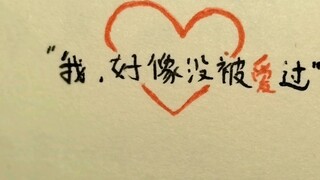 “我,好像没被爱过”